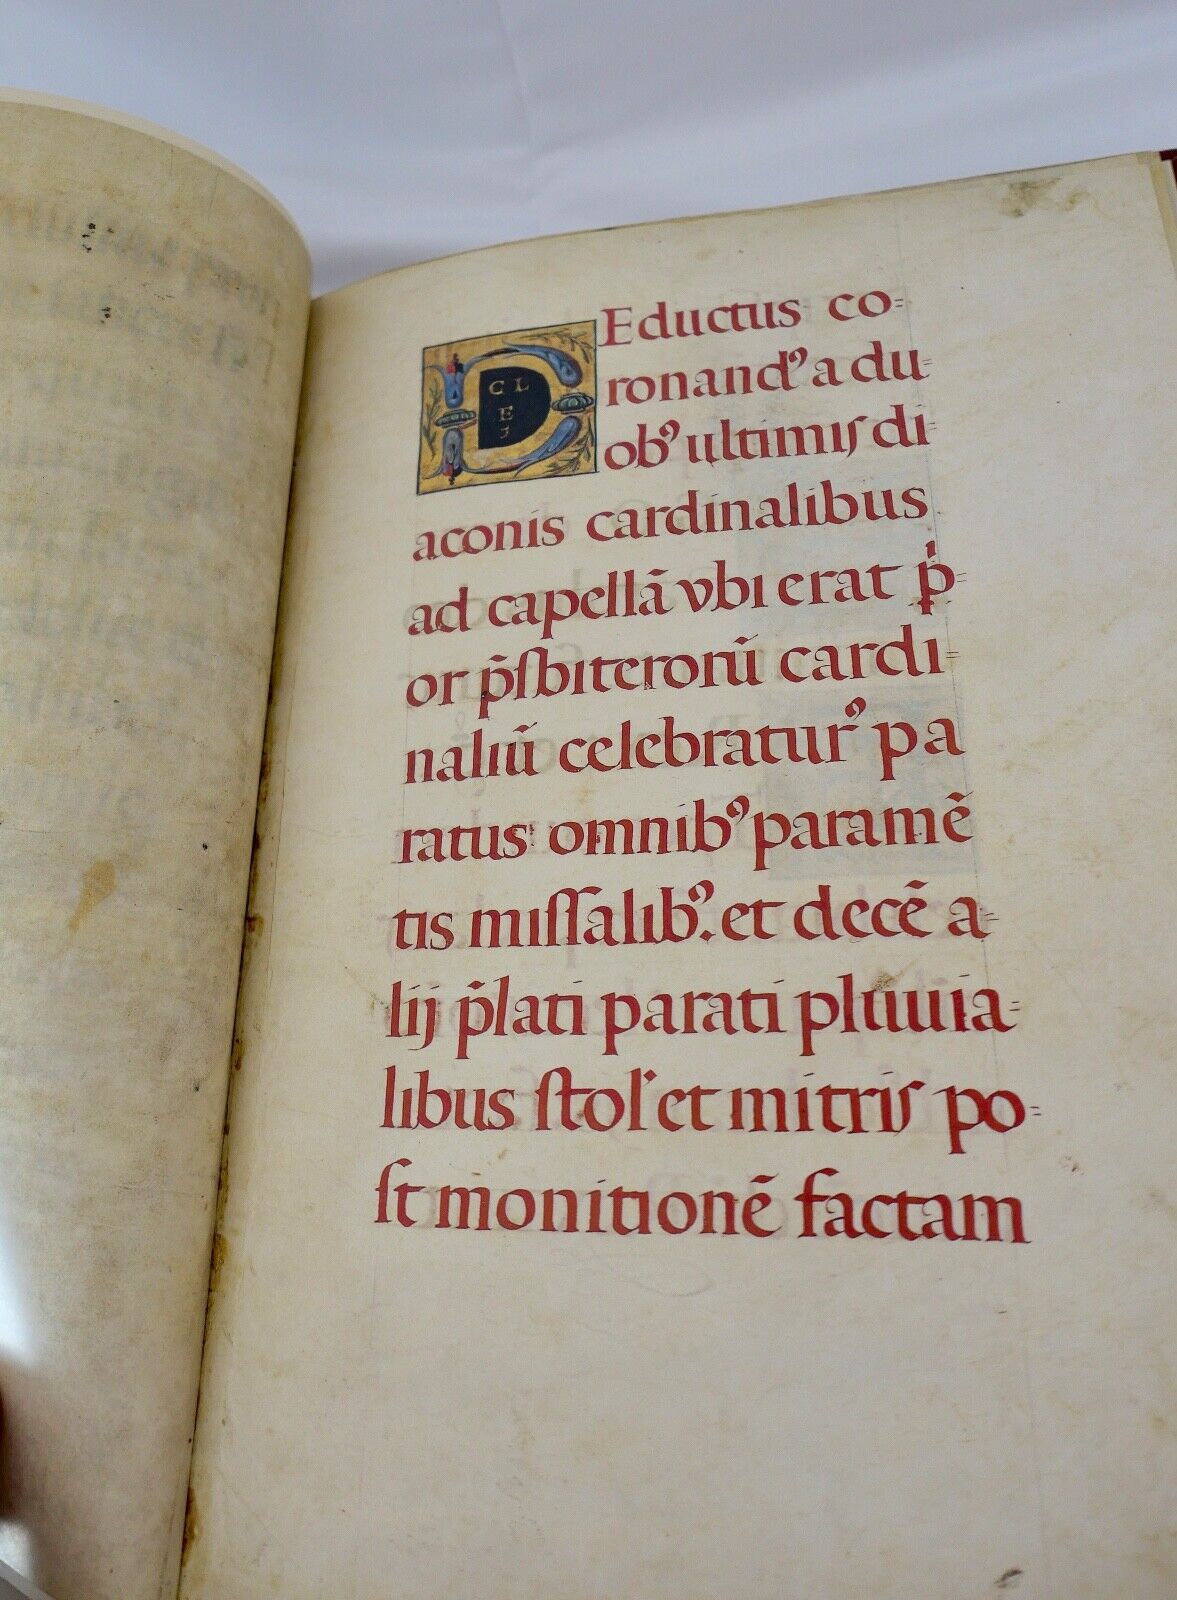 CL
E
5
DEductus co=
ronandꝰ a du=
obꝰ ultimis di=
aconis cardinalibus
ad capellā vbi erat p̍=
or p̄sbiterorū cardi=
naliū celebraturꝰ pa
ratus omnibꝰ paramē
tis missalibꝰ. et decē a=
lij p̄lati parati pluuia=
libus stol' et mitris po=
st monitionē factam